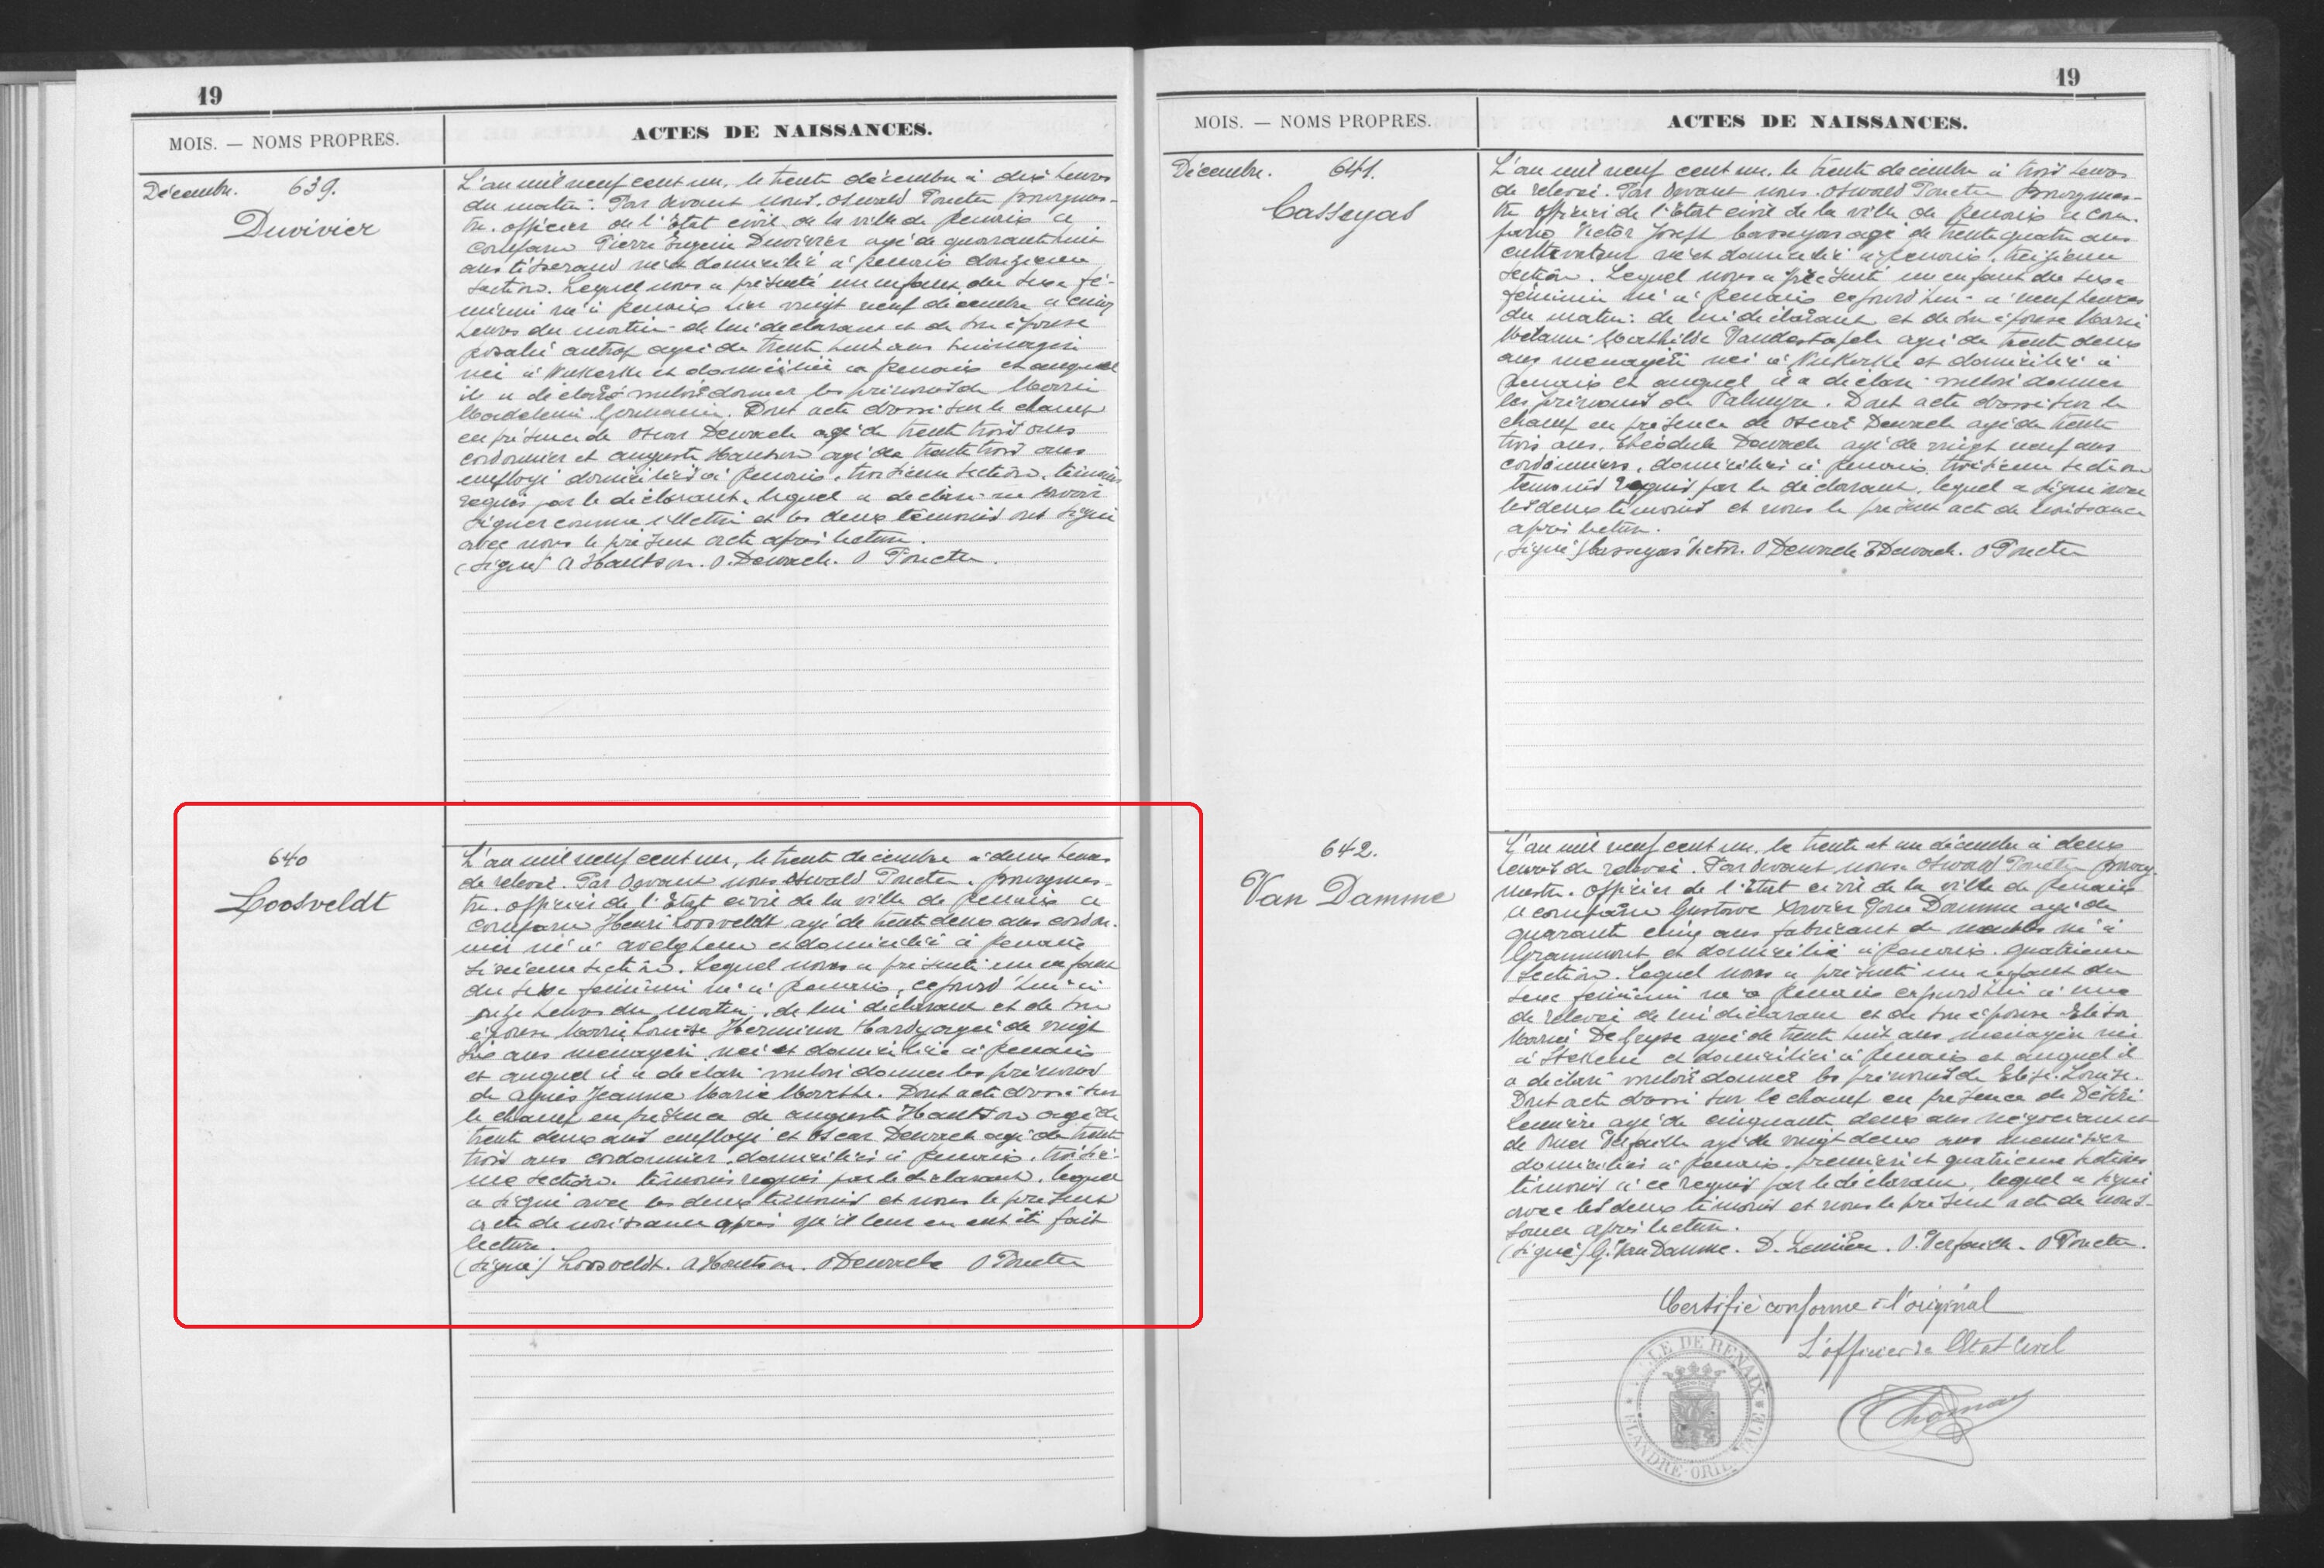 19
MOIS. — NOMS PROPRES.
ACTES DE NAISSANCES.
Décembre. 639.
Duvivier
L'an mil neuf cent un, le trente décembre à dix heures
du matin. Par devant nous, Oswald Ponette, bourgmes-
tre. officier de l'Etat civil de la ville de Renaix a
comparu Pierre Eugène Duvivier agé de quarante huit
ans tisserand né et domicilié à Renaix douzième
section. Lequel nous a présenté un enfant du sexe fé-
minin né à Renaix hier vingt neuf décembre à cinq
heures du matin de lui déclarant et de son épouse
Rosalie agée de trente huit ans ménagère
née à Nukerke et domiciliée à Renaix et auquel
il a déclaré vouloir donner les prénoms de Marie
Madeleine Germaine. Dont acte dressé sur le champ
en présence de Oscar Dewaele agé de trente trois ans
cordonnier et Auguste Hautson agé de trente trois ans
employé domiciliés à Renaix, troisième section, témoins
requis par le déclarant, lequel a déclaré ne savoir
signer comme illettré et les deux témoins ont signé
avec nous le présent acte après lecture.
(signé) A Hautson. O. Dewaele. O Ponette.
640
Loosveldt
L'an mil neuf cent un, le trente décembre à deux heures
de relevée. Par devant nous Oswald Ponette, bourgmes-
tre. officier de l'Etat civil de la ville de Renaix a
comparu Henri Loosveldt agé de trente deux ans cordon-
nier né à Avelghem et domicilié à Renaix
sixième section. Lequel nous a présenté un enfant
du sexe féminin né à Renaix, cejourd'hui à
onze heures du matin, de lui déclarant et de son
épouse Marie Louise Hermine Hardy agée de vingt
six ans ménagère née et domiciliée à Renaix
et auquel il a déclaré vouloir donner les prénoms
de Agnès Jeanne Marie Marthe. Dont acte dressé sur
le champ en présence de Auguste Hautson agé de
trente deux ans employé et Oscar Dewaele agé de trente
trois ans cordonnier, domiciliés à Renaix, troisiè-
me section. témoins requis par le déclarant, lequel
a signé avec les deux témoins et nous le présent
acte de naissance après qu'il leur en ait été fait
lecture.
(signé) Loosveldt. A Hautson. O Dewaele O Ponette
19
MOIS. — NOMS PROPRES.
ACTES DE NAISSANCES.
Décembre. 641.
Casseyas
L'an mil neuf cent un, le trente décembre à trois heures
de relevée. Par devant nous. Oswald Ponette bourgmes-
tre officier de l'Etat civil de la ville de Renaix a com-
paru Victor Joseph Casseyas agé de trente quatre ans
cultivateur né et domicilié à Renaix, treizième
section. Lequel nous a présenté un enfant du sexe
féminin né à Renaix cejourd'hui à neuf heures
du matin: de lui déclarant et de son épouse Marie
Mélanie Mathilde Vandestapele agée de trente deux
ans ménagère née à Nukerke et domiciliée à
Renaix et auquel il a déclaré vouloir donner
les prénoms de Palmyre. Dont acte dressé sur le
champ en présence de Oscar Dewaele agé de trente
trois ans, Théodule Dewaele agé de vingt neuf ans
cordonniers, domiciliés à Renaix troisième section
témoins requis par le déclarant, lequel a signé avec
les deux témoins et nous le présent acte de naissance
après lecture.
(signé) Casseyas Victor. O Dewaele T Dewaele. O Ponette
642.
Van Damme
L'an mil neuf cent un, le trente et un décembre à deux
heures de relevée. Par devant nous Oswald Ponette bourg-
mestre. officier de l'Etat civil de la ville de Renaix
a comparu Gustave Xavier Van Damme agé de
quarante cinq ans fabricant de meubles né à
Grammont et domicilié à Renaix. quatrième
section. Lequel nous a présenté un enfant du
sexe féminin né à Renaix cejourd'hui à une
de relevée de lui déclarant et de son épouse Elisa
Marie agée de trente huit ans ménagère née
à Stekene et domiciliée à Renaix et auquel il
a déclaré vouloir donner les prénoms de Elise Louise.
Dont acte dressé sur le champ en présence de Désiré
Lemière agé de cinquante deux ans négociant et
de Omer Verfaille agé de vingt deux ans menuisier
domiciliés à Renaix. première et quatrième sections
témoins à ce requis par le déclarant, lequel a signé
avec les deux témoins et nous le présent acte de nais-
sance après lecture.
(signé) G. Van Damme. D. Lemière. O. Verfaille. O Ponette.
Certifié conforme à l'original
L'officier de l'Etat Civil
VILLE DE RENAIX
FLANDRE-ORIENTALE
Thomas